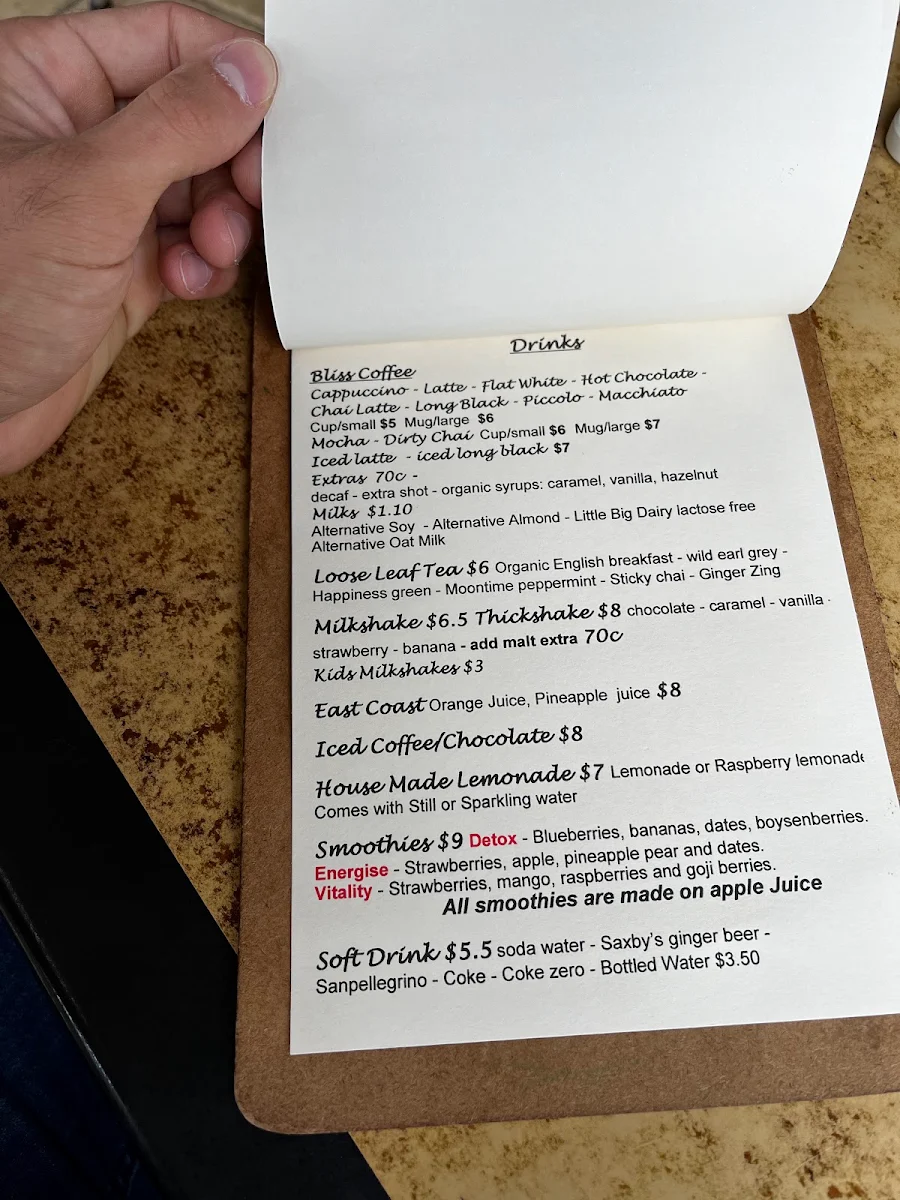 Drinks
Bliss Coffee
Cappuccino - Latte - Flat White - Hot Chocolate -
Chai Latte - Long Black - Piccolo - Macchiato
Cup/small $5 Mug/large $6
Mocha - Dirty Chai Cup/small $6 Mug/large $7
Iced latte - iced long black $7
Extras 70c -
decaf - extra shot - organic syrups: caramel, vanilla, hazelnut
Milks $1.10
Alternative Soy - Alternative Almond - Little Big Dairy lactose free
Alternative Oat Milk
Loose Leaf Tea $6 Organic English breakfast - wild earl grey -
Happiness green - Moontime peppermint - Sticky chai - Ginger Zing
Milkshake $6.5 Thickshake $8 chocolate - caramel - vanilla -
strawberry - banana - add malt extra 70c
Kids Milkshakes $3
East Coast Orange Juice, Pineapple juice $8
Iced Coffee/Chocolate $8
House Made Lemonade $7 Lemonade or Raspberry lemonade
Comes with Still or Sparkling water
Smoothies $9 Detox - Blueberries, bananas, dates, boysenberries.
Energise - Strawberries, apple, pineapple pear and dates.
Vitality - Strawberries, mango, raspberries and goji berries.
All smoothies are made on apple Juice
Soft Drink $5.5 soda water - Saxby's ginger beer -
Sanpellegrino - Coke - Coke zero - Bottled Water $3.50